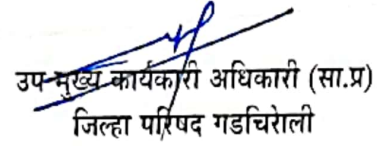 उप मुख्य कार्यकारी अधिकारी (सा.प्र)
जिल्हा परिषद गडचिरोली